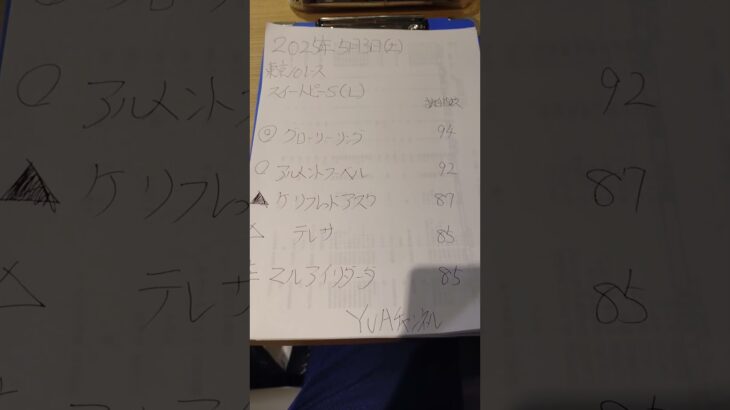 2025年5月3日(土)
東京10レース
スイートピーS(L)
◎ グローリーリンク 94
○ アルメントフーベル 92
▲ ケリフレッドアスク 87
△ テレサ 85
マルアイリダータ 85
YUAチャンネル